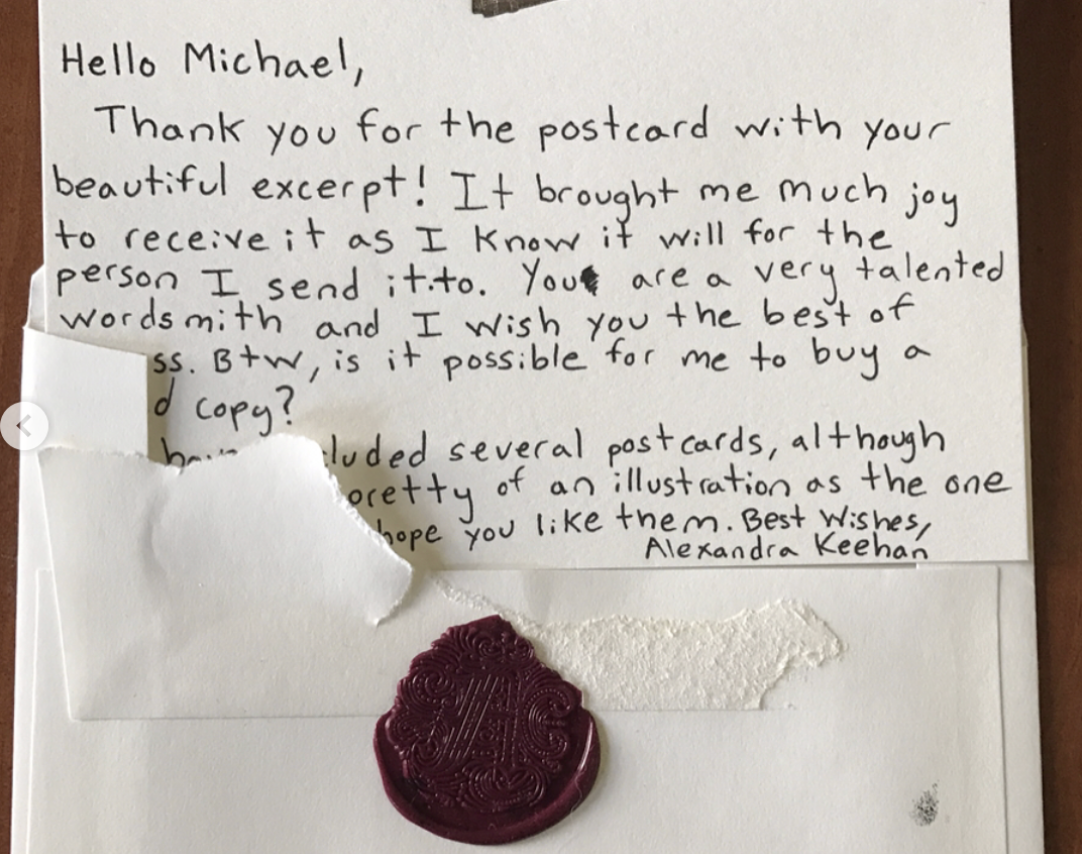 Hello Michael,
Thank you for the postcard with your
beautiful excerpt! It brought me much joy
to receive it as I know it will for the
person I send it to. You are a very talented
wordsmith and I wish you the best of
ss. Btw, is it possible for me to buy a
d copy?
cluded several postcards, although
pretty of an illustration as the one
hope you like them. Best Wishes,
Alexandra Keehan